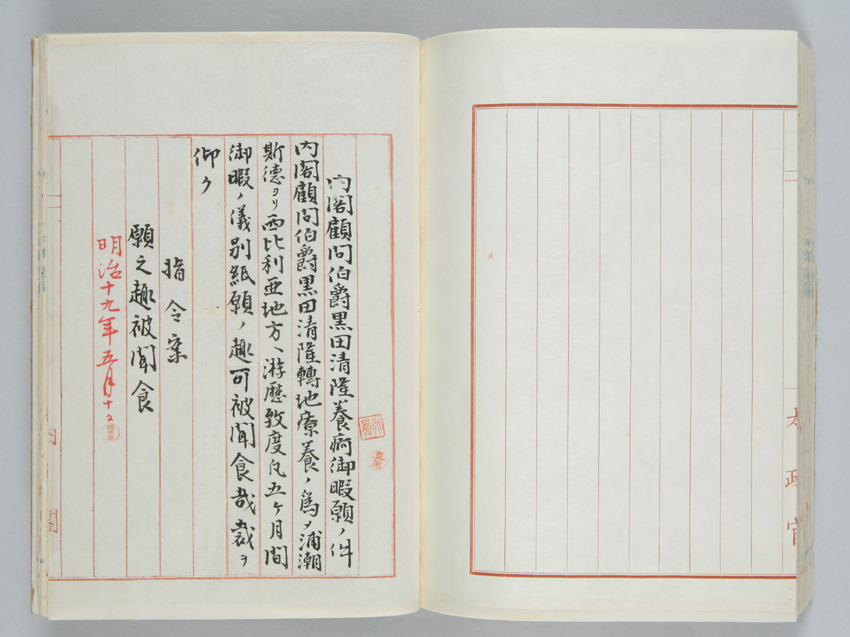 太政官
内閣顧問伯爵黒田清隆養痾御暇願ノ件
内閣顧問伯爵黒田清隆轉地療養ノ為メ浦潮
斯德ヨリ西比利亜地方ヘ游歴致度凡五ヶ月間
御暇ノ儀別紙願ノ趣可被聞食哉裁ヲ
仰ク
指令案
願之趣被聞食
明治十九年五月十
内閣